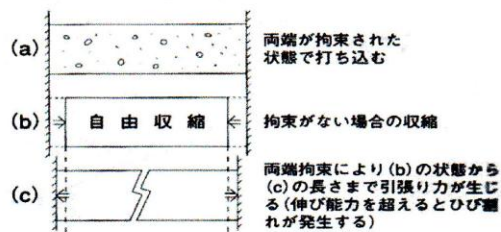 (a)
両端が拘束された
状態で打ち込む
(b)
自由収縮
拘束がない場合の収縮
(c)
両端拘束により(b)の状態から
(c)の長さまで引張り力が生じ
る(伸び能力を超えるとひび割
れが発生する)